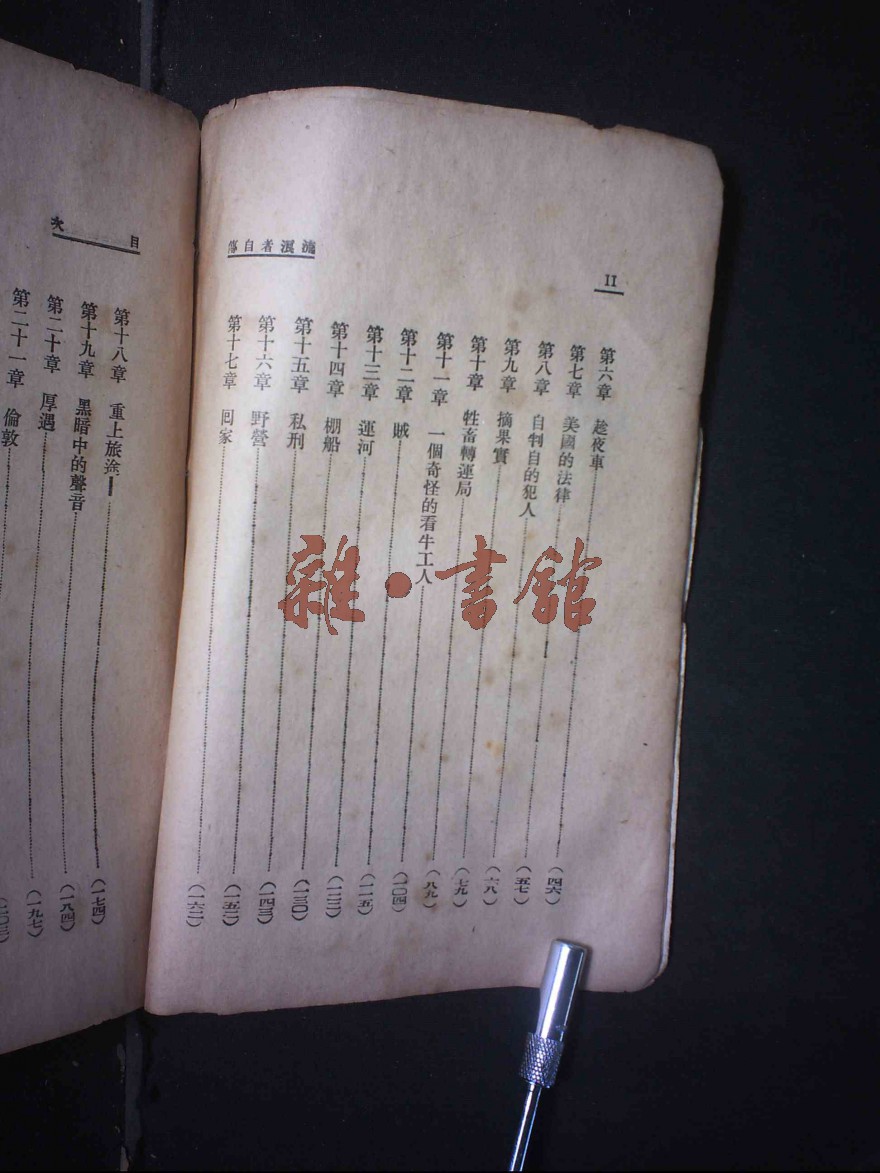 II
流氓者自傳
第六章 趁夜車 (四六)
第七章 美國的法律 (五七)
第八章 自判自的犯人 (六八)
第九章 摘果實 (七九)
第十章 牲畜轉運局 (八九)
第十一章 一個奇怪的看牛工人 (一〇四)
第十二章 賊 (一一五)
第十三章 運河 (一二二)
第十四章 棚船 (一三〇)
第十五章 私刑 (一四三)
第十六章 野營 (一五二)
第十七章 回家 (一六二)
目次
第十八章 重上旅途 (一七四)
第十九章 黑暗中的聲音 (一八四)
第二十章 厚遇 (一九七)
第二十一章 倫敦 (二〇三)
雜·書館